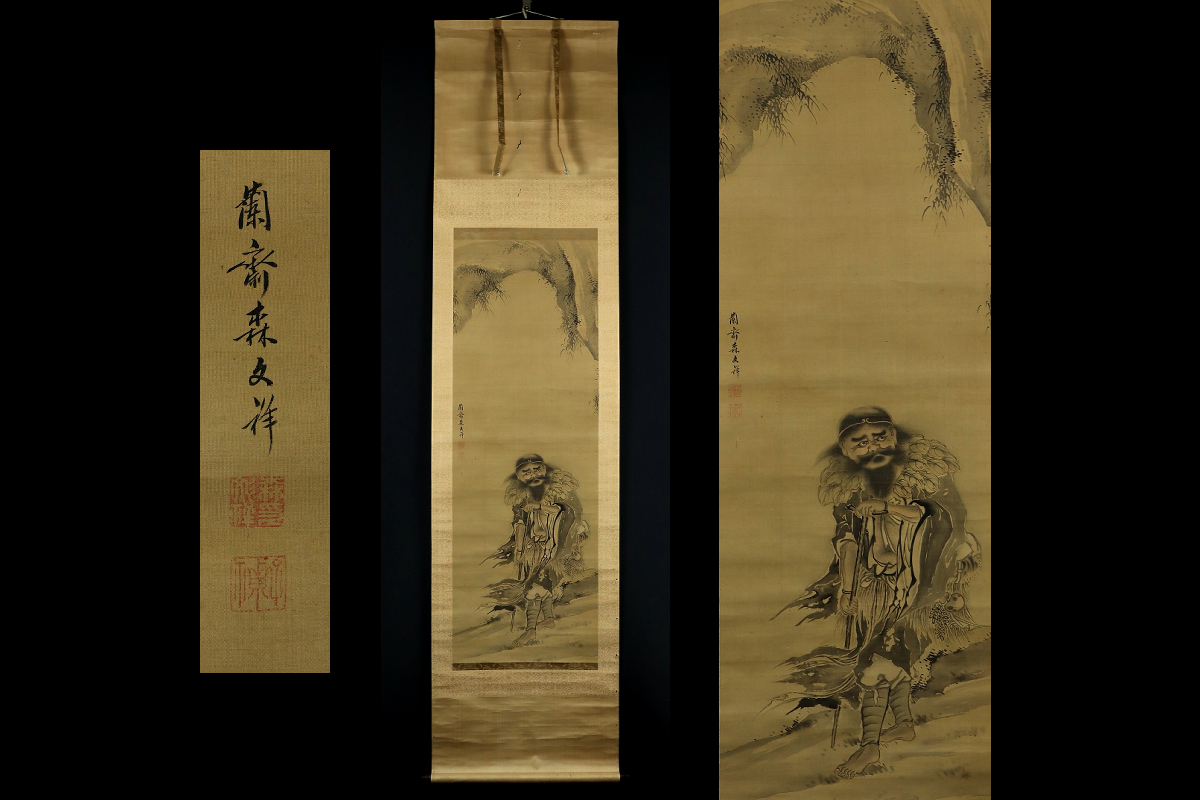 蘭齋森文祥
蘭齋森文祥
蘭齋森文祥